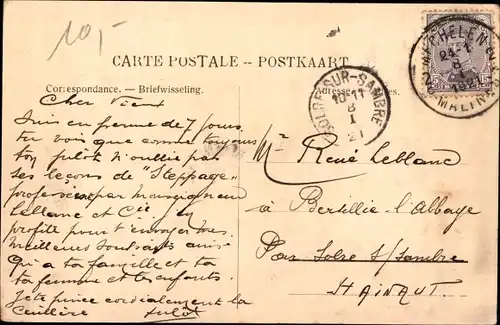 10,-
CARTE POSTALE – POSTKAART
Correspondance. — Briefwisseling.
Adresse
es.
MECHELEN
24-I
8
1921
MALINES
SOLRE-SUR-SAMBRE
10-11
8
I
21
15
Cher Vieux
Suis en ferme de 7 jours
tu vois que comme toujours
ton Julôt n'oublie pas
ses leçons de "Steppage"
professées par monseigneur
Leblanc et Cie j'en
profite pour t'envoyer mes
meilleurs souhaits ainsi
qu'à ta famille et ta
ta femme et tes enfants.
Je te pince cordialement la
Cuillère Julôt
Mr René Leblanc
à Bersillie-l'Abbaye
Par Solre S/Sambre
HAINAUT